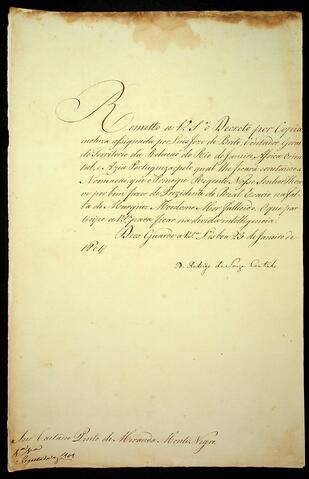 Remetto a V. S.ª o Decreto por Copia
incluza assignada por Luis Jose de Brito, Contador Geral
do Territorio da Relacao do Rio de Janeiro, Africa Orien
tal, e Azia Portugueza, pelo qual lhe ficará constante a
Nomeacaõ, que o Principe Regente Nosso Senhor Hou
ve por bem fazer de Prezidente do Real Erario na fal
ta do Marquez Mordomo Mor fallecido, o que par
ticipo a V. S.ª para ficar na devida intelligencia.
Deos Guarde a V. S.ª Lisboa 23 de Janeiro de
1804
D. Rodrigo de Souza Coutinho
Caetano Pinto de Miranda Monte Negro